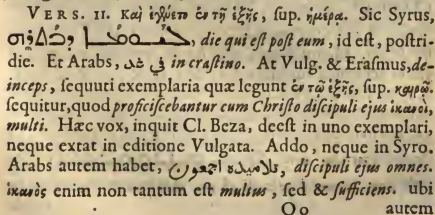 VERS. 11. Καὶ ἐγένετο ἐν τῇ ἑξῆς, ſup. ἡμέρᾳ. Sic Syrus,
die qui eſt poſt eum, id eſt, poſtri-
die. Et Arabs, في غد in craſtino. At Vulg. & Eraſmus, de-
inceps, ſequuti exemplaria quæ legunt ἐν τῷ ἑξῆς, ſup. καιρῷ.
ſequitur, quod proficiſcebantur cum Chriſto diſcipuli ejus ἱκανοὶ,
multi. Hæc vox, inquit Cl. Beza, deeſt in uno exemplari,
neque extat in editione Vulgata. Addo, neque in Syro.
Arabs autem habet, تلاميذه اجمعون, diſcipuli ejus omnes.
ἱκανὸς enim non tantum eſt multus, ſed & ſufficiens. ubi
Oo autem